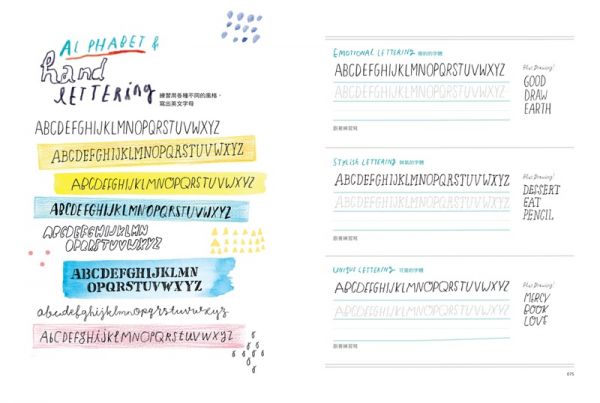 ALPHABET &
hand
LETTERING
練習用各種不同的風格，
寫出英文字母
ABCDEFGHIJKLMNOPQRSTUVWXYZ
ABCDEFGHIJKLMNOPQRSTUVWXYZ
ABCDEFGHIJKLMNOPQRSTUVWXYZ
ABCDEFGHIJKLMNOPQRSTUVWXYZ
ABCDEFGHIJKLMN
OPQRSTUVWXYZ
ABCDEFGHIJKLMN
OPQRSTUVWXYZ
abcdefghijklmnopqrstuvwxyz
ABCDEFGHIJKLMNOPQRSTUVWXYZ
EMOTIONAL LETTERING
ABCDEFGHIJKLMNOPQRSTUVWXYZ
ABCDEFGHIJKLMNOPQRSTUVWXYZ
跟著練習寫
Plus Drawing!
GOOD
DRAW
EARTH
STYLISH LETTERING 帥氣的字體
ABCDEFGHIJKLMNOPQRSTUVWXYZ
ABCDEFGHIJKLMNOPQRSTUVWXYZ
跟著練習寫
Plus Drawing!
DESSERT
EAT
PENCIL
UNIQUE LETTERING 可愛的字體
ABCDEFGHIJKLMNOPQRSTUVWXYZ
ABCDEFGHIJKLMNOPQRSTUVWXYZ
跟著練習寫
Plus Drawing!
MERCY
BOOK
LOVE
075